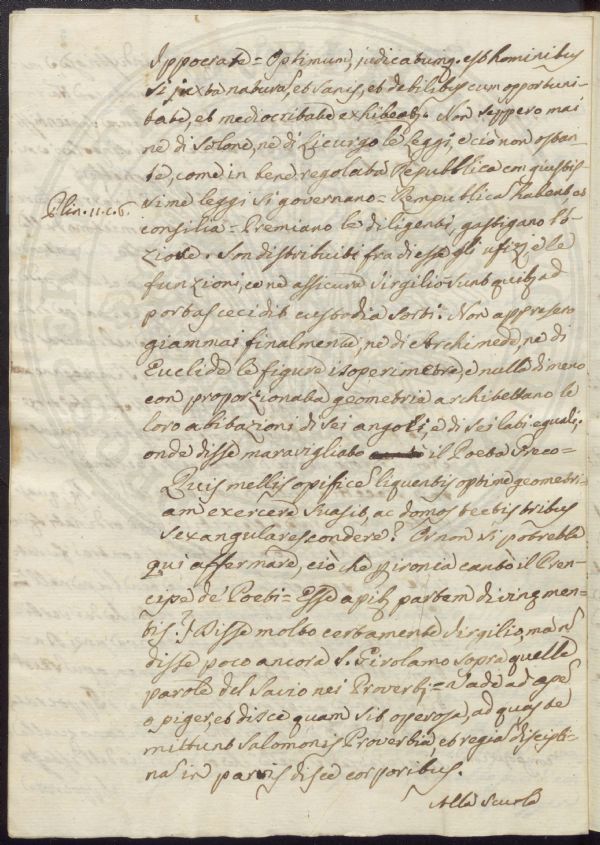 Ippocrate = Optimum, judicatumq. est hominibus
si juxta natura, et sanis, et debilibus cum opportuni-
tate, et mediocritate exhibeatr. Non seppero mai
ne di Solone, ne di Licurgo le leggi, e ciò non ostan-
te, come in bene regolata Repubblica con giustis-
Plin. 11. c. 6. sime leggi si governano = Rempublica habent, et
consilia = Premiano le diligenti, gastigano l'o-
ziose. Son distribuiti fra di esse gli ufizj e le
funzioni, ce ne assicura Virgilio = Sunt quibq ad
portas cecidit custodia sorti. Non appresero
giammai finalmente, ne di Archimede, ne di
Euclide le figure isoperimetre, e nulla di meno
con proporzionata geometria architettano le
loro abitazioni di sei angoli, e di sei lati eguali;
onde disse maravigliato il Poeta Greco =
Quis mellis opifice liquentis optine geometri-
am exercere suasit, ac domos tectis tribus
sexangulares condere? Or non si potrebbe
qui affermare, ciò che p ironia cantò il Pren-
cipe de' Poeti = Esse apibq partem divinq men-
tis? Disse molto certamente Virgilio, ma n
disse poco ancora S. Girolamo sopra quelle
parole del Savio nei Proverbj = Vade ad ape
o piger, et disce quam sit operosa, ad quas te
mittunt Salomonis Proverbia, et regia discipli-
na in parvis disce corporibus.
Alla Scuola